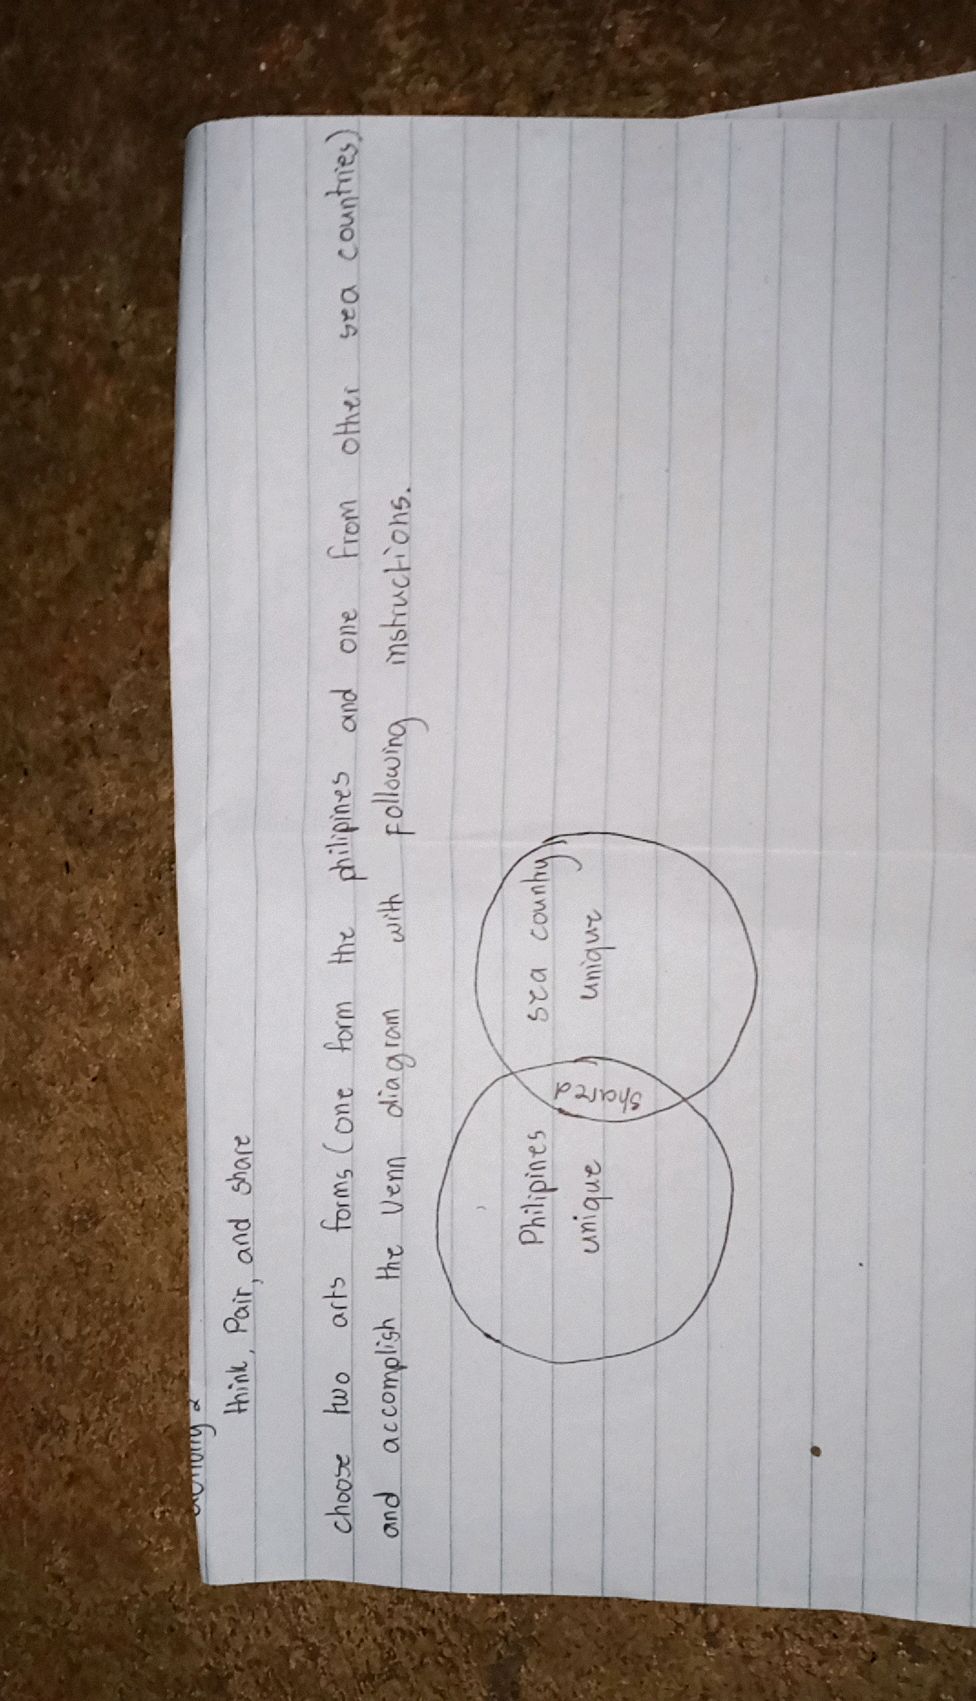 think, Pair, and share
choose two arts forms (one form the philipines and one from other sea countries)
and accomplish the Venn diagram with following instructions.
Philipines
unique
shared
sea country
unique